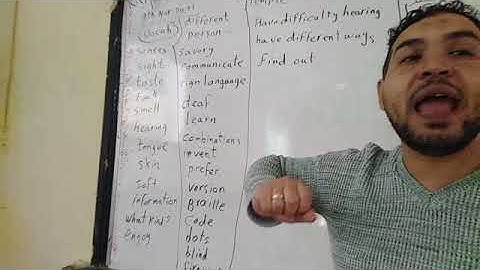 different
(vocab)
person
senses
sight
taste
smell
hearing
Tongue
skin
soft
information
what kinds
enjoy
savory
communicate
sign language
deaf
learn
combinations
invent
prefer
version
Braille
code
dots
blind
Have difficulty hearing
have different ways
Find out